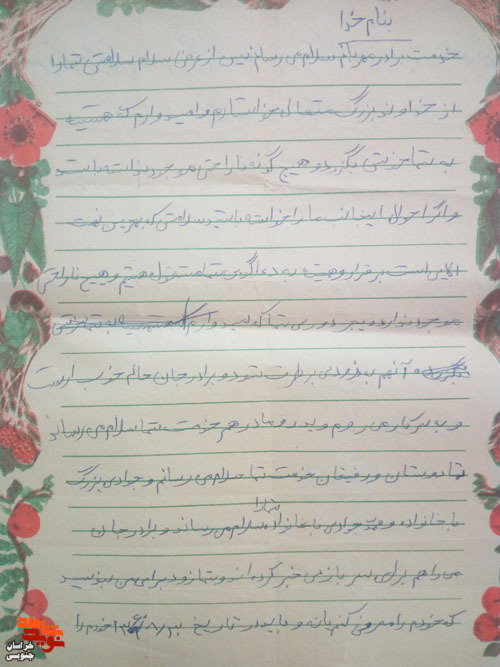 بنام خدا
خدمت برادر مهربانم سلام می رسانم پس از عرض سلام سلامتی شمارا
از خداوند بزرگ متعال خواستارم و امیدوارم که همیشه
به شما خوش بگذرد و هیچ گونه ناراحتی موجود نداشته باشد
و اگر احوال اینجانب را خواسته باشید سلامتی که بهترین نعمت
الهی است برقرار و همیشه به دعاگوی شما مشغول هستم و هیچ ناراحتی
موجود ندارد بجز دوری شما که امیدوارم
و آنهم بزودی برطرف شود و برادر جان حالم خوب است
و به سرکار می روم و پدر و مادرم خدمت شما سلام می رساند
تمام دوستان و رفیقان خدمت شما سلام می رسانم و جوادی بزرگ
با خانواده و جوادی با خانواده شمارا سلام می رساند و برادر جان
من را هم برای سربازی خبر کرده اند و شما زود برای من بنویسید
که خودم را معرفی کنم یا نه و باید در تاریخ خودم را
نوید شاهد
خراسان جنوبی